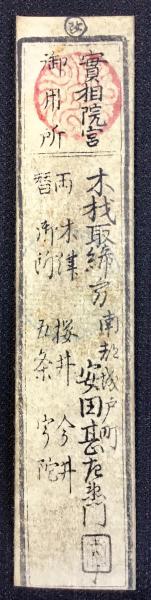 改
實相院宮
御用所
才材取締方
南都城戸町
安田甚左衛門
両木津 桜井 今井
暦御所 五条 宇陀